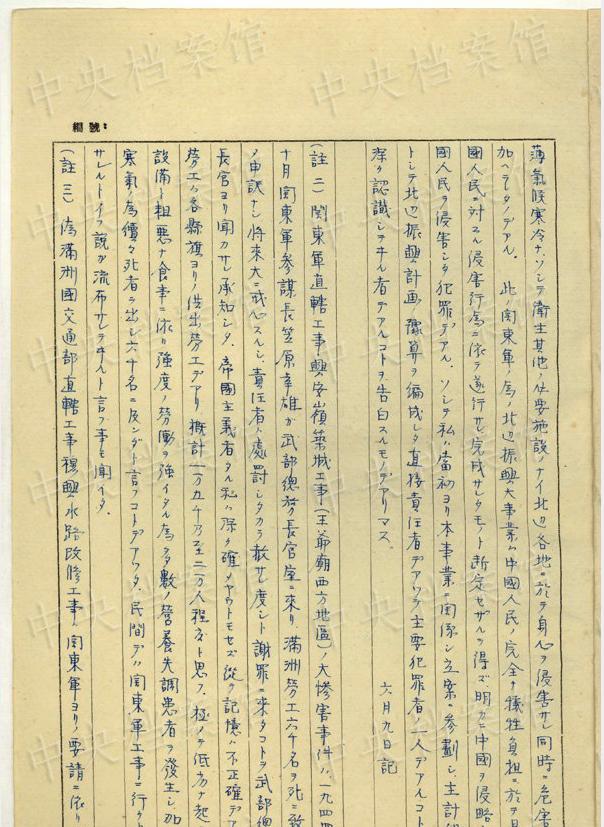 編號:
薄氣候寒冷ナ、ソシテ衛生其他ノ必要施設ノナイ北辺各地ニ於テ身心ヲ侵害サレ同時ニ危害
加ヘラレタノデアル。此ノ関東軍ノ為ノ北辺振興大事業ハ中國人民ノ完全ナ犠牲負担ニ於テ日
國人民ニ対スル侵害行為ニ依テ遂行サレ完成サレタモノト断定セザルヲ得ズ明カニ中國ヲ侵略
國人民ヲ侵害シタ犯罪デアル。ソシテ私ハ當初ヨリ本事業ニ関係シ立案ニ参劃シ主計
トシテ北辺振興計画ノ豫算ヲ編成シタ直接責任者デアツテ主要犯罪者ノ一人デアルコト
深ク認識シテヰル者デアルコトヲ告白スルモノデアリマス。
六月九日記
(註二)関東軍直轄工事興安嶺築城工事(王爺廟西方地區)ノ大惨害事件ハ、一九四
十月関東軍参謀長笠原幸雄ガ武部總務長官室ニ來リ、滿洲勞工六千名ヲ死ニ致
タ申訳ナシ将來大ニ戒心スルシ、責任者ハ處罰シタカラ赦サレ度シト謝罪ニ來タコトヲ武部總
長官ヨリ聞カサレ承知シタ。帝國主義者タル私ハ深ク確メヤウトモセズ從テ記憶ハ不正確デア
勞工ハ各縣旗ヨリノ供出勞工デアリ概計一万五千乃至二万人程度ト思フ。極メテ低劣ナ起
設備ト粗悪ナ食事ニ依リ強度ノ勞働ヲ強イタル為多數ノ営養失調患者ヲ發生シ加
寒氣ノ為續々死者ヲ出シ六千名ニ及ンダト言フコトデアツタ。民間デハ関東軍工事ニ行ク
サレルトイフ説ガ流布サレテヰルト言フ事モ聞イタ。
(註三)偽滿洲國交通部直轄工事穆興水路改修工事ハ関東軍ヨリノ要請ニ依リ
中央档案馆